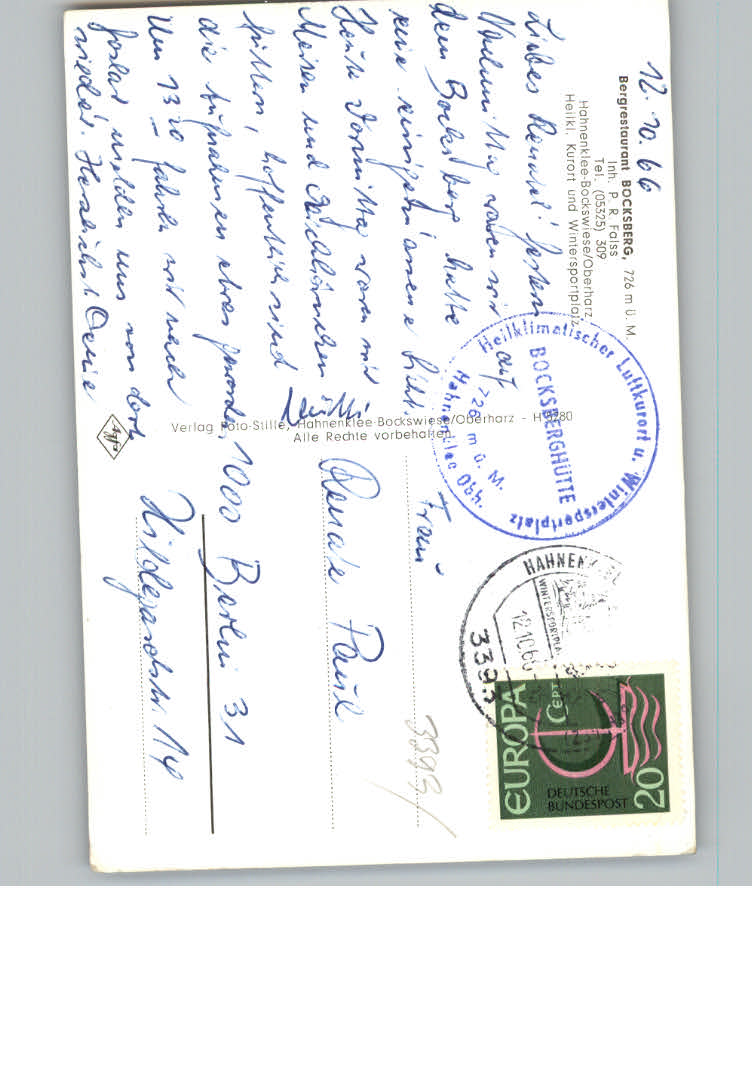 12.10.66
Bergrestaurant BOCKSBERG, 726 m ü. M
Inh. P. R. Falss
Tel. (05325) 309
Hahnenklee-Bockswiese/Oberharz,
Heilkl. Kurort und Wintersportplatz
Liebes Renatel! Gestern
Nachmittag waren wir auf
dem Bocksberg hatte
eine einigermassene Sicht.
Heute Vormittag waren wir
Meisen und Eichhörnchen
füttern, hoffentlich sind
die Aufnahmen etwas geworden.
Um 13.20 fahren wir nach
Goslar melden uns von dort
wieder. Herzlichst Deine
Verlag Foto-Stille, Hahnenklee-Bockswiese/Oberharz - H 9780
Alle Rechte vorbehalten
Agfa
Heilklimatischer Luftkurort u. Wintersportplatz
BOCKSBERGHÜTTE
726 m ü. M.
Hahnenklee Obh.
HAHNENKLEE
WINTERSPORTPLATZ
12.10.66
3393
EUROPA
CEPT
DEUTSCHE
BUNDESPOST
20
Frau
Renate Paul
1000 Berlin 31
Hildegardstr. 14
3393